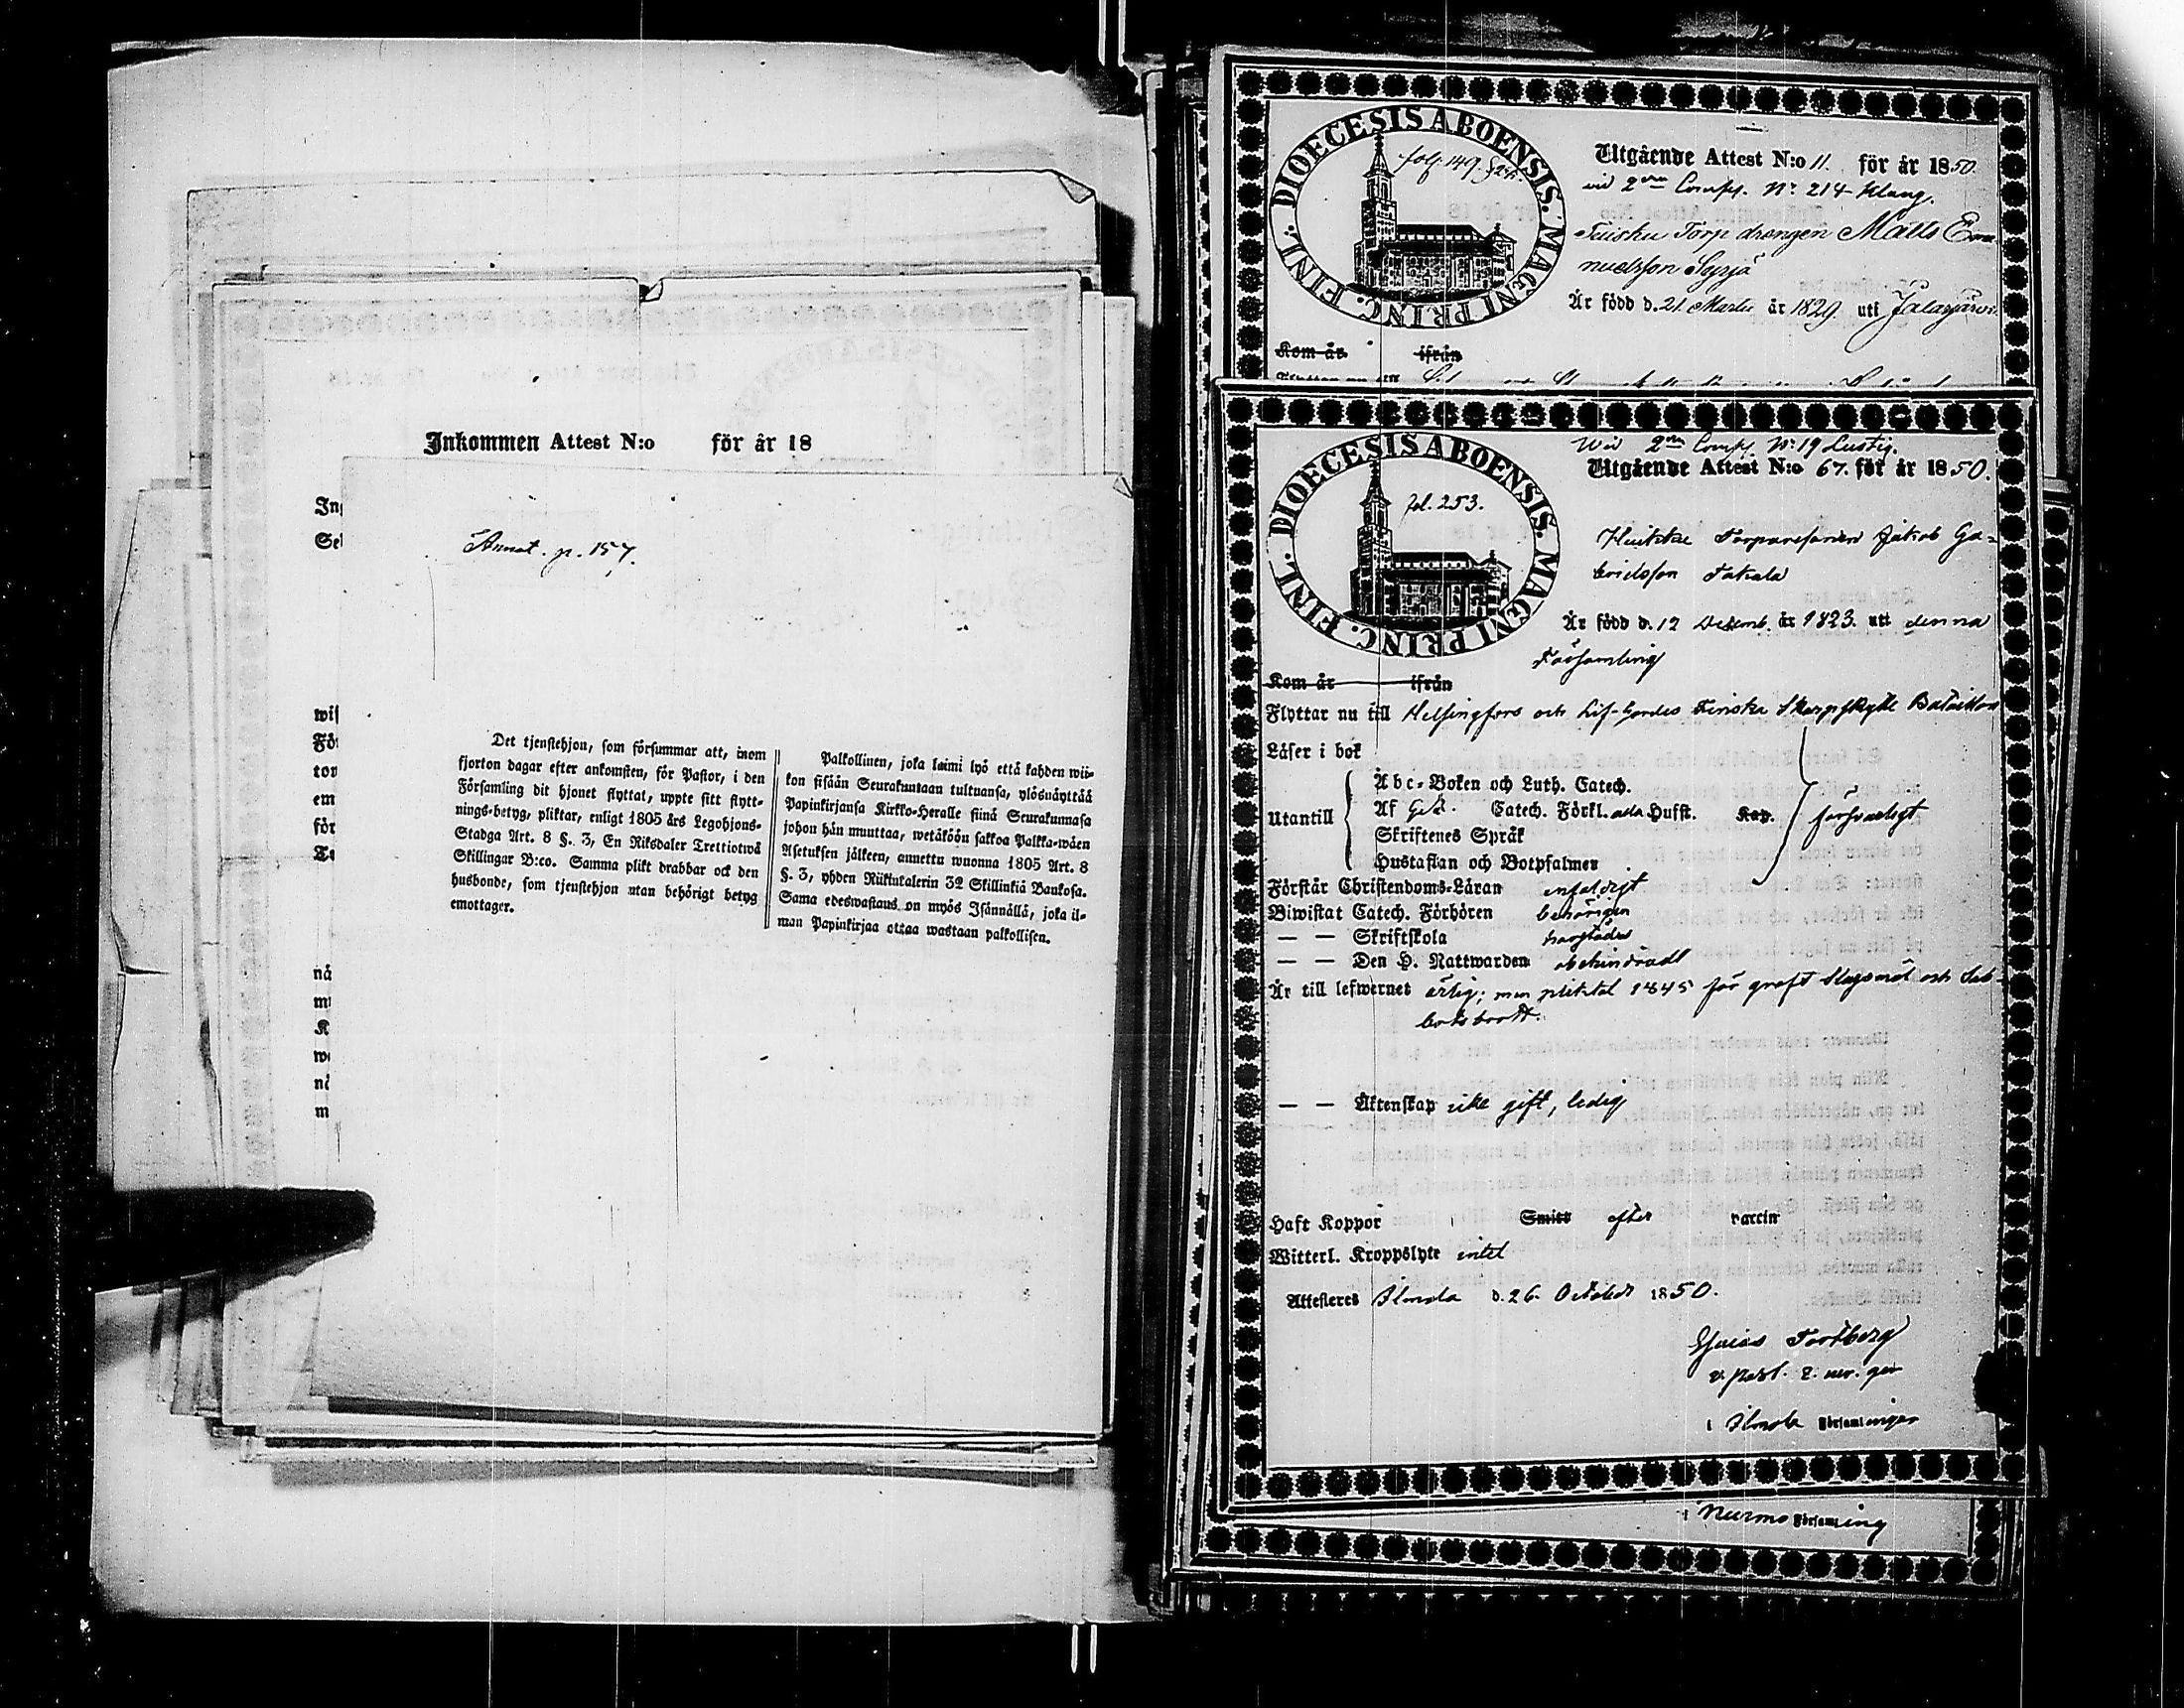 Inkommen Attest N:o för år 18
Annot. p. 157.
wis
nå
Det tjenstehjon, som försummar att, inom
fjorton dagar efter ankomsten, för Pastor, i den
Församling dit hjonet flyttat, uppte sitt flytt-
nings-betyg, pliktar, enligt 1805 års Legohjons-
Stadga Art. 8 §. 3, En Riksdaler Trettiotwå
Skillingar B:co. Samma plikt drabbar ock den
husbonde, som tjenstehjon utan behörigt betyg
emottager.
Palkollinen, joka laimi lyö että kahden wii-
kon sisään Seurakuntaan tultuansa, ylösnäyttää
Papinkirjansa Kirkko-Heralle siinä Seurakunnasa
johon hän muuttaa, wetäköön sakkoa Palkka-wäen
Asetuksen jälkeen, annettu wuonna 1805 Art. 8
§. 3, yhden Riikintalerin 32 Skillinkiä Bankosa.
Sama edeswastaus on myös Isännällä, joka il-
man Papinkirjaa ottaa wastaan palkollisen.
DIOECESIS ABOENSIS. MAGNI PRINC. FINL.
fol. 149.
Utgående Attest N:o 11. för år 1850.
wid 2:dra Comp. N:o 214 Klang.
Torp drengen Matts Ema
nuelsson Syrjä
Är född d. 21. Martii år 1829. uti Jalasjärvi.
Kom år ifrån
DIOECESIS ABOENSIS. MAGNI PRINC. FINL.
fol. 253.
Wid 2:dra Comp. N:o 19 Lustig.
Utgående Attest N:o 67. för år 1850.
Torparesonen Jakob Ga-
brielsson Takala
Är född d. 12 Decemb. år 1823. uti denna
Församling
Kom år ifrån
Flyttar nu till Helsingfors och Lif-Gardes Finska Skarpskytte Bataillon
Läser i bok
Utantill
Abc-Boken och Luth. Catech.
Af Catech. Förkl. alla Hufst. Kap.
Skriftenes Språk
Hustaflan och Botpsalmer
försvarligt
Förstår Christendoms-Läran enfaldigt
Biwistat Catech. Förhören behörigen
— — Skriftskola
— — Den H. Nattwarden obehindradt
Är till lefwernet ärlig; men pliktat 1845 för groft slagsmål och Sab-
batsbrott.
— — Äktenskap icke gift, ledig
Haft Koppor Smitt efter vaccin
Witterl. Kroppslyte intet
Attesteras Ilmola d. 26. October 1850.
Forsberg
i Ilmola Församlingen
i Nurmo Församling